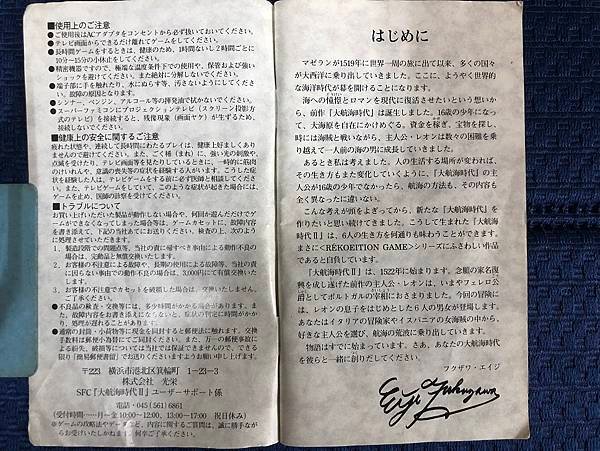 ■使用上のご注意
●ご使用後はACアダプタをコンセントから必ず抜いておいてください。
●テレビ画面からできるだけ離れてゲームをしてください。
●長時間ゲームをするときは、健康のため、1時間ないし2時間ごとに
10分〜15分の小休止をしてください。
●精密機器ですので、極端な温度条件下での使用や、保管および強い
ショックを避けてください。また絶対に分解しないでください。
●端子部に手を触れたり、水にぬらす等、汚さないようにしてくださ
い。故障の原因となります。
●シンナー、ベンジン、アルコール等の揮発油で拭かないでください。
●スーパーファミコンにプロジェクションテレビ(スクリーン投影方
式のテレビ)を接続すると、残像現象(画面ヤケ)が生ずるため、
接続しないでください。
■健康上の安全に関するご注意
疲れた状態や、連続して長時間にわたるプレイは、健康上好ましくあり
ませんので避けてください。また、ごく稀(まれ)に、強い光の刺激や、
点滅を受けたり、テレビ画面等を見たりしているときに、一時的に筋肉
のけいれんや、意識の喪失等の症状を経験する人がいます。こうした症
状を経験した人は、テレビゲームをする前に必ず医師と相談してくださ
い。また、テレビゲームをしていて、このような症状が起きた場合には、
ゲームを止め、医師の診察を受けてください。
■トラブルについて
お買い上げいただいた製品が動作しない場合や、何回か遊んだだけでゲ
ームができなくなってしまった場合等は、ゲームカセットに、故障内容
を書き添えて、下記の当社あてにお送りください。検査の上、次のよう
に処理させていただきます。
1. 製造段階での問題点等、当社の責に帰すべき事由による動作不良の
場合は、完動品と無償交換いたします。
2. お客様の不注意による故障や、長期の使用による故障等、当社の責
に因らない事由での動作不良の場合は、3,000円にて有償交換いた
します。
3. お客様の不注意でカセットを破損した場合は、交換いたしません。
ご了承ください。
●不良品の検査・交換等には、多少時間がかかる場合があります。ま
た、故障内容をお書き添えにならないと、症状の判定に時間がかか
り、処理が遅れることがあります。
●通常の封筒・小荷物等に現金を同封すると郵便法に触れます。交換
手数料は郵便小為替にてご同封ください。また、万一の郵便事故に
よる紛失、破損等については当社では保証できませんので、できる
限り「簡易郵便書留」でお送りくださいますようお願い申し上げます。
〒223 横浜市港北区箕輪町 1−23−3
株式会社 光栄
SFC『大航海時代Ⅱ』ユーザーサポート係
電話・045(561)6861
(受付時間……月〜金 10:00〜12:00、13:00〜17:00 祝日休み)
※ゲームの攻略法やデータなど、内容に関するご質問は、誠に勝手なが
らお受けいたしかねます。何卒ご了承ください。
はじめに
マゼランが1519年に世界一周の旅に出て以来、多くの国々
が大西洋に乗り出していきました。ここに、ようやく世界的
な海洋時代が幕を開けることになります。
海への憧憬とロマンを現代に復活させたいという想いか
ら、前作『大航海時代』は誕生しました。16歳の少年になっ
て、大海原を自在にかけめぐる。資金を稼ぎ、宝物を探し、
時には海賊と戦いながら、主人公・レオンは数々の困難を乗
り越えて一人前の海の男に成長していきました。
あるとき私は考えました。人の生活する場所が変われば、
その生き方もまた変化していくように、『大航海時代』の主
人公が16歳の少年でなかったら、航海の方法も、その内容も
全く異なったに違いない。
こんな考えが頭をよぎってから、新たな『大航海時代』を
作りたいと思い続けてきました。こうして生まれた『大航海
時代Ⅱ』は、6人の生き方を何通りも味わうことができます。
まさに<RÉKOEITION GAME>シリーズにふさわしい作品
であると自負しています。
『大航海時代Ⅱ』は、1522年に始まります。念願の家名復
興を成し遂げた前作の主人公・レオンは、いまやフェレロ公
爵としてポルトガルの宰相におさまりました。今回の冒険に
は、レオンの息子をはじめとした6人の男女が登場します。
あなたはイタリアの冒険家やイスパニアの女海賊の中から、
好きな主人公を選び、航海の荒波に乗り出していきます。
物語はすでに始まっています。さあ、あなたの大航海時代
を彼らと一緒に創りだしてください。
フクザワ・エイジ
Eiji Fukuzawa